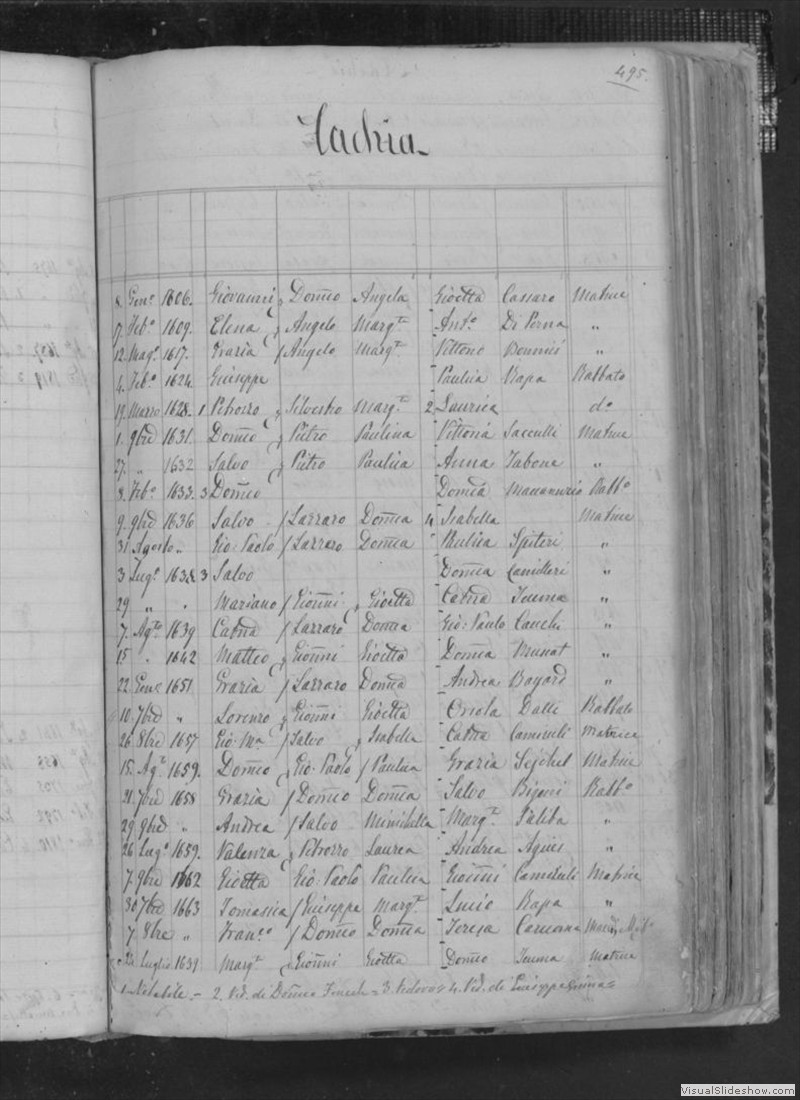 495.
Zachria
8. Genº 1606. Giovanni Domco Angela Gioetta Cassaro Matrice
7. Febº 1609. Elena Angelo Margta Antº Di Perna "
12. Magº 1617. Grazia Angelo Margta Vittorio Bonnici "
4. Febº 1624. Giuseppe Paulica Rapa Rabbato
19. Marzo 1628. 1 Petrozzo Silvestro Margta 2 Laurica dº
1. 9bre 1631. Domco Pietro Paulina Vittoria Matrice
27. " 1632 Salvo Pietro Paulica Anna Tabone "
8. Febº 1633. 3 Domco Domca Rabbº
9. 9bre 1636 Salvo Lazzaro Domca 4 Isabella Matrice
31. Agosto " Gio: Paolo Lazzaro Domca Paulica Spiteri "
3 Lugº 1638 3 Salvo Domca Camilleri "
29 " " Mariano Gionni Gioetta Catna "
7. Agto 1639 Catna Lazzaro Domca Gio: Paulo Cauchi "
15 " 1642 Matteo Gionni Gioetta Domca "
22. Genº 1651 Grazia Lazzaro Domca Andrea "
10. 7bre " Lorenzo Gionni Gioetta Orsola Dalli Rabbato
26 8bre 1657 Gio: Ma Salvo Isabella Catna Matrice
15. Agto 1659. Domco Gio: Paolo Paulica Grazia Matrice
21. 7bre 1658 Grazia Domco Domca Salvo Rabbº
29. 9bre " Andrea Salvo Margta Saliba "
26 Lugº 1659. Valenza Petrozzo Laurea Andrea Agius "
7. 9bre 1662 Gioetta Gio: Paolo Paulica Gionni Matrice
30 7bre 1663 Tomasica Giuseppe Margta Lucio Rapa "
7. 8bre " Francº Domco Domca Teresa Caruana
24. Luglio 1639 Margta Gionni Gioetta Domco Matrice
1 Notabile - 2. Ved. di Domco = 3. Vedovo = 4. Ved. di Giuseppe
VisualSlideshow.com